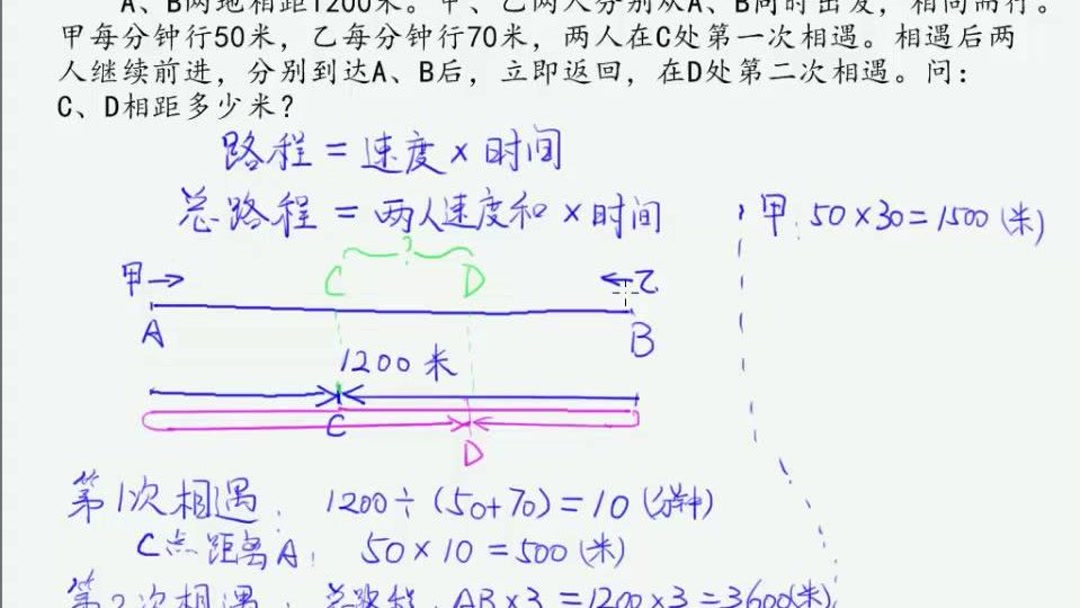 A、B两地相距1200米。甲、乙两人分别从A、B同时出发，相向而行。
甲每分钟行50米，乙每分钟行70米，两人在C处第一次相遇。相遇后两
人继续前进，分别到达A、B后，立即返回，在D处第二次相遇。问：
C、D相距多少米？
路程 = 速度 × 时间
总路程 = 两人速度和 × 时间
甲: 50×30=1500(米)
?
甲→ C D ←乙
A B
1200米
C
D
第1次相遇: 1200÷(50+70)=10(分钟)
C点距离A: 50×10=500(米)
第2次相遇: 总路程: AB×3=1200×3=3600(米)